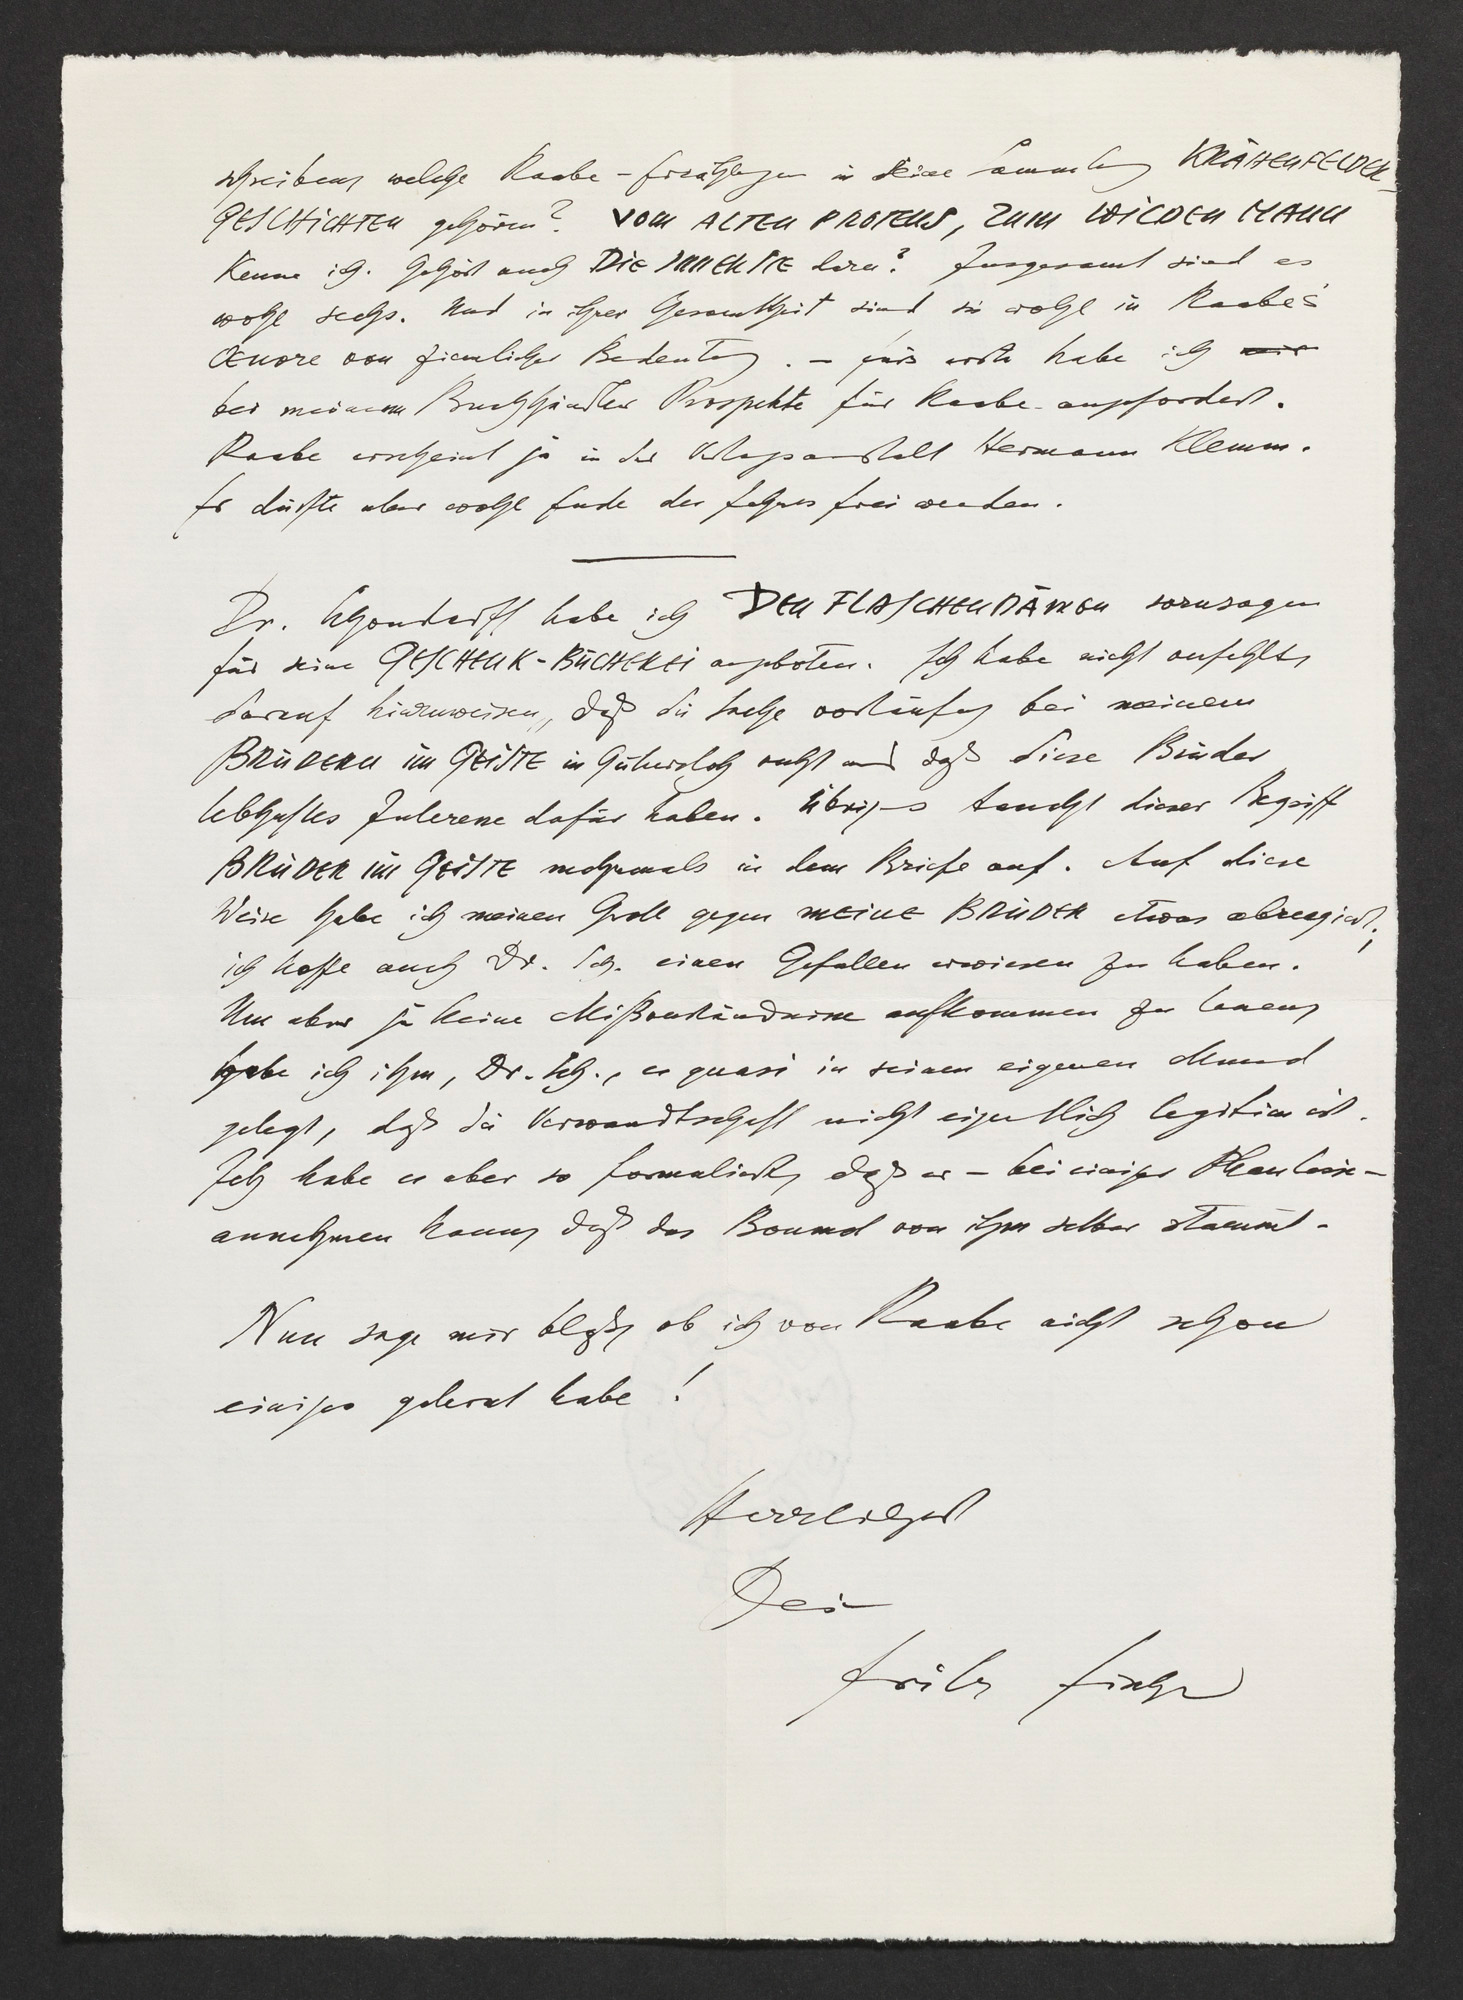 schreiben, welche Raabe-Erzählungen in seine Sammlung KRÄHENFELDER-
GESCHICHTEN gehören? VOM ALTEN PROTEUS, ZUM WILDEN MANN
kenne ich. Gehört auch DIE INNERSTE dazu? Insgesamt sind es
wohl sechs. Und in ihrer Gesamtheit sind sie wohl in Raabes
Œuvre von ziemlicher Bedeutung. – Fürs erste habe ich mir
bei meinem Buchhändler Prospekte für Raabe angefordert.
Raabe erscheint ja in der Verlagsanstalt Hermann Klemm.
Er dürfte aber wohl Ende des Jahres frei werden.
Dr. Schondorff habe ich DEN FLASCHENDÄMON sozusagen
für seine GESCHENK-BÜCHEREI angeboten. Ich habe nicht verfehlt,
darauf hinzuweisen, daß die Sache vorläufig bei meinen
BRÜDERN IM GEISTE in Gütersloh ruht und daß diese Brüder
lebhaftes Interesse dafür haben. Übrigens taucht dieser Begriff
BRÜDER IM GEISTE mehrmals in dem Briefe auf. Auf diese
Weise habe ich meinen Groll gegen MEINE BRÜDER etwas abreagiert;
ich hoffe auch Dr. Sch. einen Gefallen erwiesen zu haben.
Um aber ja keine Mißverständnisse aufkommen zu lassen,
habe ich ihm, Dr. Sch., es quasi in seinen eigenen Mund
gelegt, daß die Verwandtschaft nicht eigentlich legitim ist.
Ich habe es aber so formuliert, daß er – bei einiger Phantasie –
annehmen kann, daß das Bonmot von ihm selber stammt.
Nun sage mir bloß, ob ich von Raabe nicht schon
einiges gelernt habe!
Herzlichst
Dein
Fritz Fischer